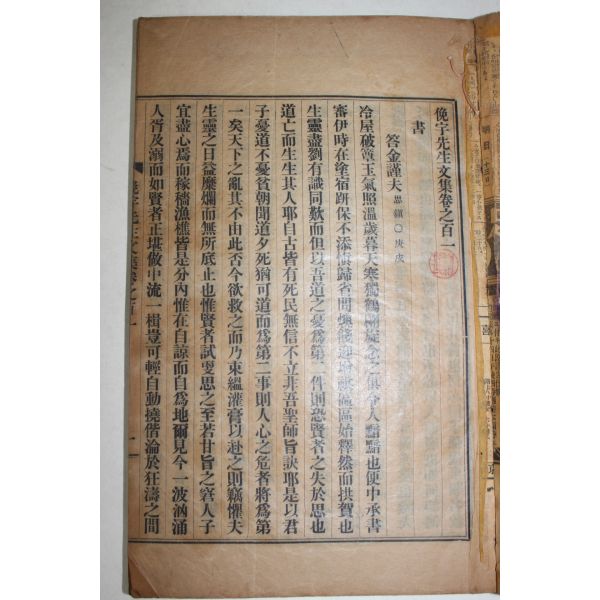 俛宇先生文集卷之百一
書
答金謹夫 思鎭○庚戌
冷屋破氈玉氣照溫歲暮天寒獨鶴翩旋念之俱令人黯黯也便中承書
審伊時在塗宿趼保不添歸省問燠餞迎區區始釋然而拱賀也
生靈盡劉有識同歎而但以吾道之憂爲第一件則恐賢者之失於思也
道亡而生生其人耶自古皆有死民無信不立非吾聖師旨訣耶是以君
子憂道不憂貧朝聞道夕死猶可道而爲第二事則人心之危者將爲第
一矣天下之亂其不由此否今欲救之而乃束縕灌膏以赴之則竊懼夫
生靈之日益糜爛而無所底止也惟賢者試更思之至若甘旨之窘人子
宜盡心焉而稼穡漁樵皆是分內惟在自諒而自爲地爾見今一波洶涌
人胥及溺而如賢者正堪做中流一楫豈可輕自動撓偕淪於狂濤之間
俛宇先生文集卷之百一
一